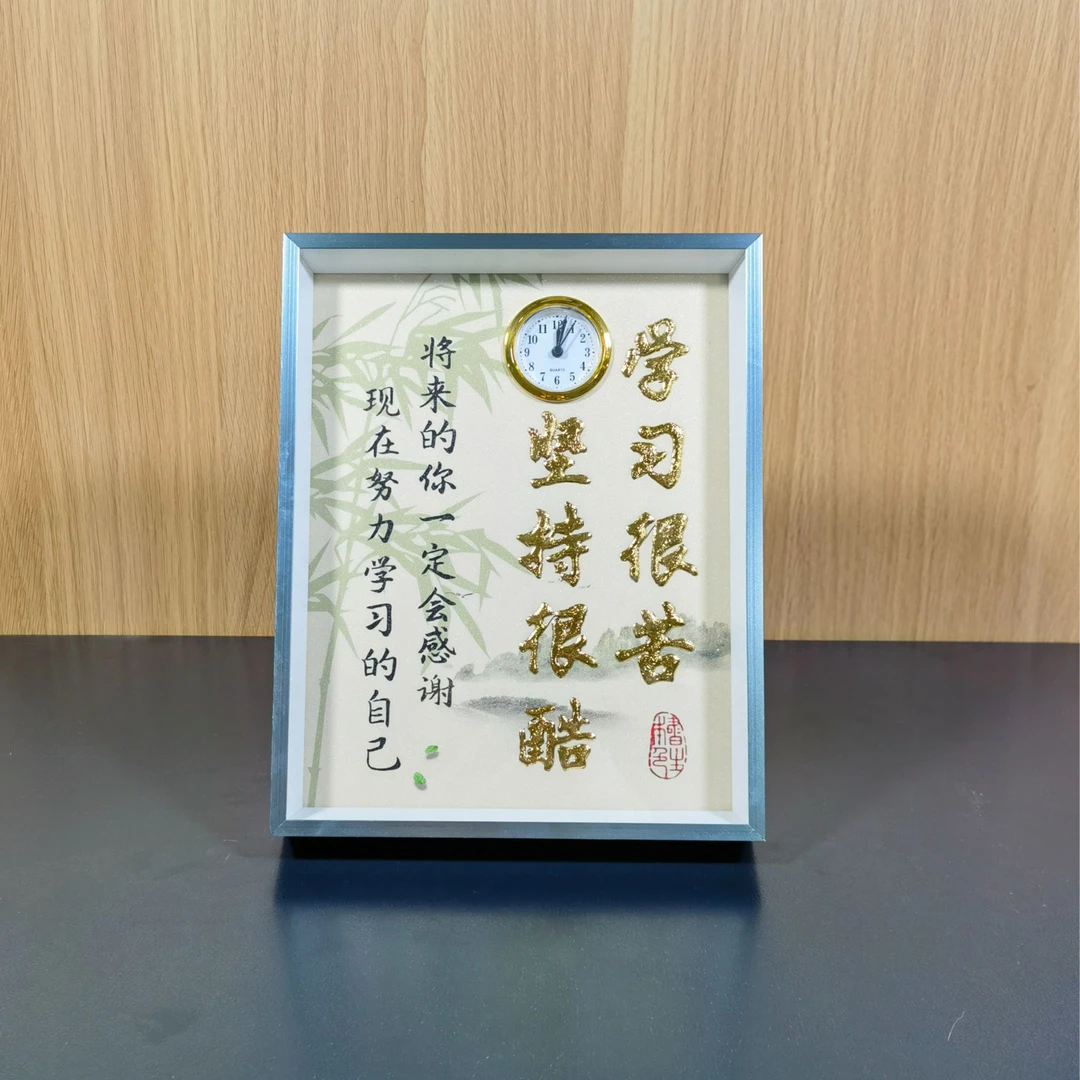 学习很苦
坚持很酷
将来的你一定会感谢
现在努力学习的自己
12
1
2
3
4
5
6
7
8
9
10
11
QUARTZ